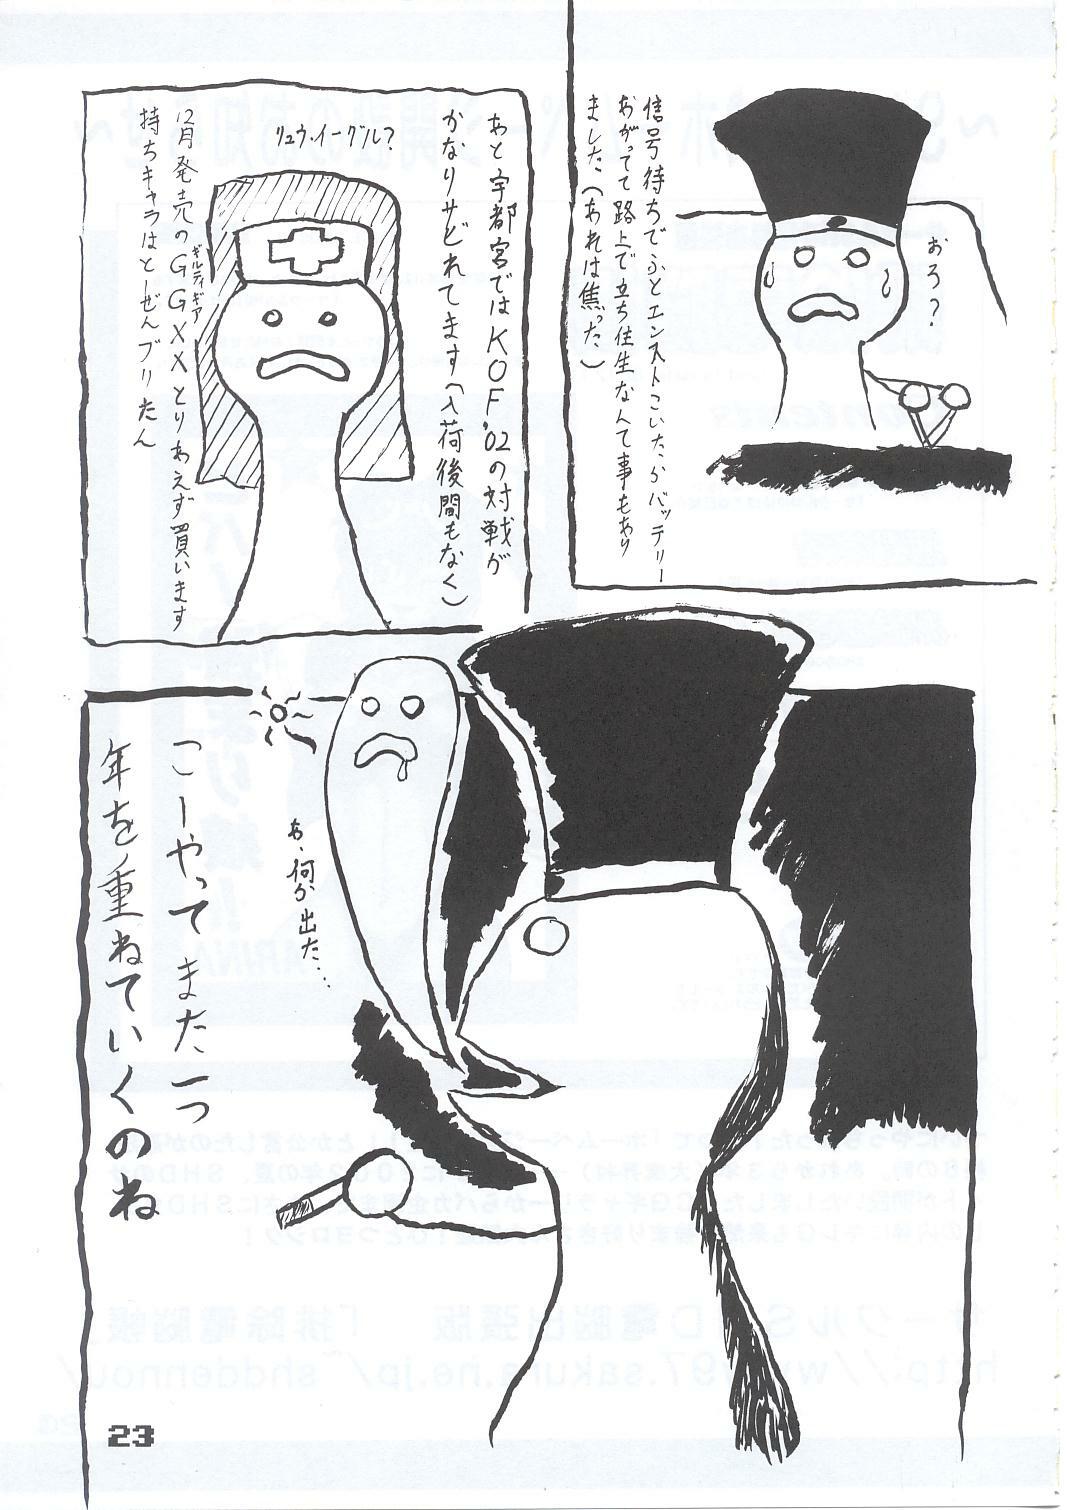 信号待ちでふとエンストこいたがバッテリー
あがってて路上で立ち往生なんて事もあり
ました、(あれは焦った)
おろ?
あと宇都宮ではKOF'02の対戦が
かなりサどれてます(入荷後間もなく)
リュウ・イーグル?
12月発売のGGXXとりあえず買います
ギルティギア
持ちキャラはとーぜんブリたん
あ、何か出た…
こーやってまた一つ
年を重ねていくのね
23